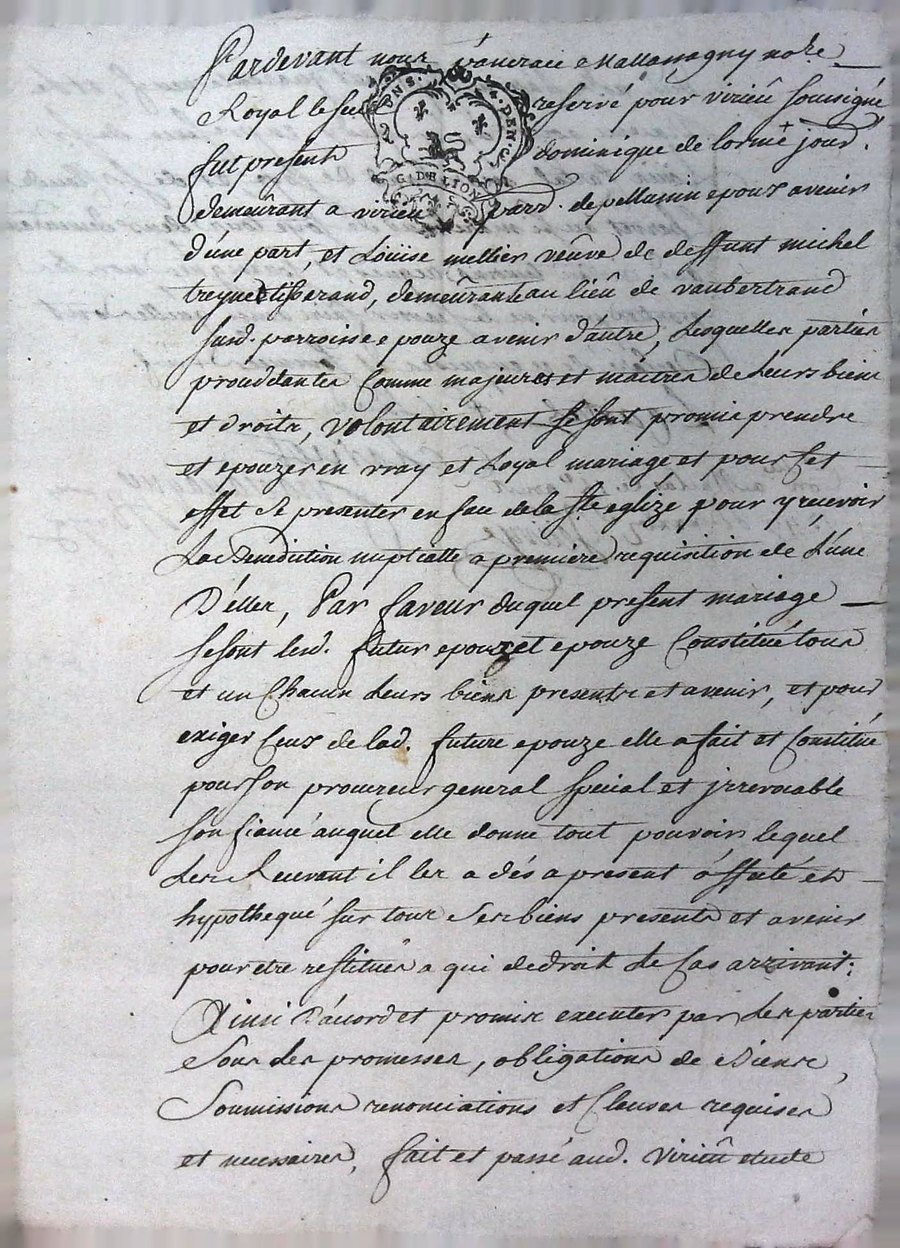 Pardevant nous pancrace Mallamagny no.re
Royal le seul reservé pour virieû sousigné
fut présent dominique de lorme jour.
demeûrant a virieu parr. de pellusin epoux avenir
d'úne part, et Loüise mellier veûve de deffunt michel
treynet tisserand, demeûrante au lieû de vaubertrand
susd. parroisse epouze avenir d'autre, Lesquelles parties
procédantes Comme majeures et maitres de Leurs biens
et droits, volontairement se sont promis prendre
et epouzer en vray et Loyal mariage et pour cet
effet se presenter en face de la Ste eglize pour y recevoir
La Benediction nuptialle a premiere requisition de L'úne
D'élles, Par faveur duquel présent mariage
se sont lesd. futur epoux et epouze Constitué tous
et un Chacun Leurs biens presents et avenir, et pour
exiger Ceux de lad. future epouze elle a fait et Constitué
pour son procureur general spécial et jrrevocable
son fiancé auquel elle donne tout pouvoir lequel
Les Recevant il les a dés a present áffecté et
hypothequé sur tous Ses biens presents et avenir
pour etre restitués a qui de droit Le Cas arrivant;
Ainsi D'áccord et promis executer par Les parties
Sous Les promesses, obligations de Biens,
Soumissions renonciations et Clauses requises
et necessaires, fait et passé aud. Virieû etude
2 S. DEN.
G. DE LION